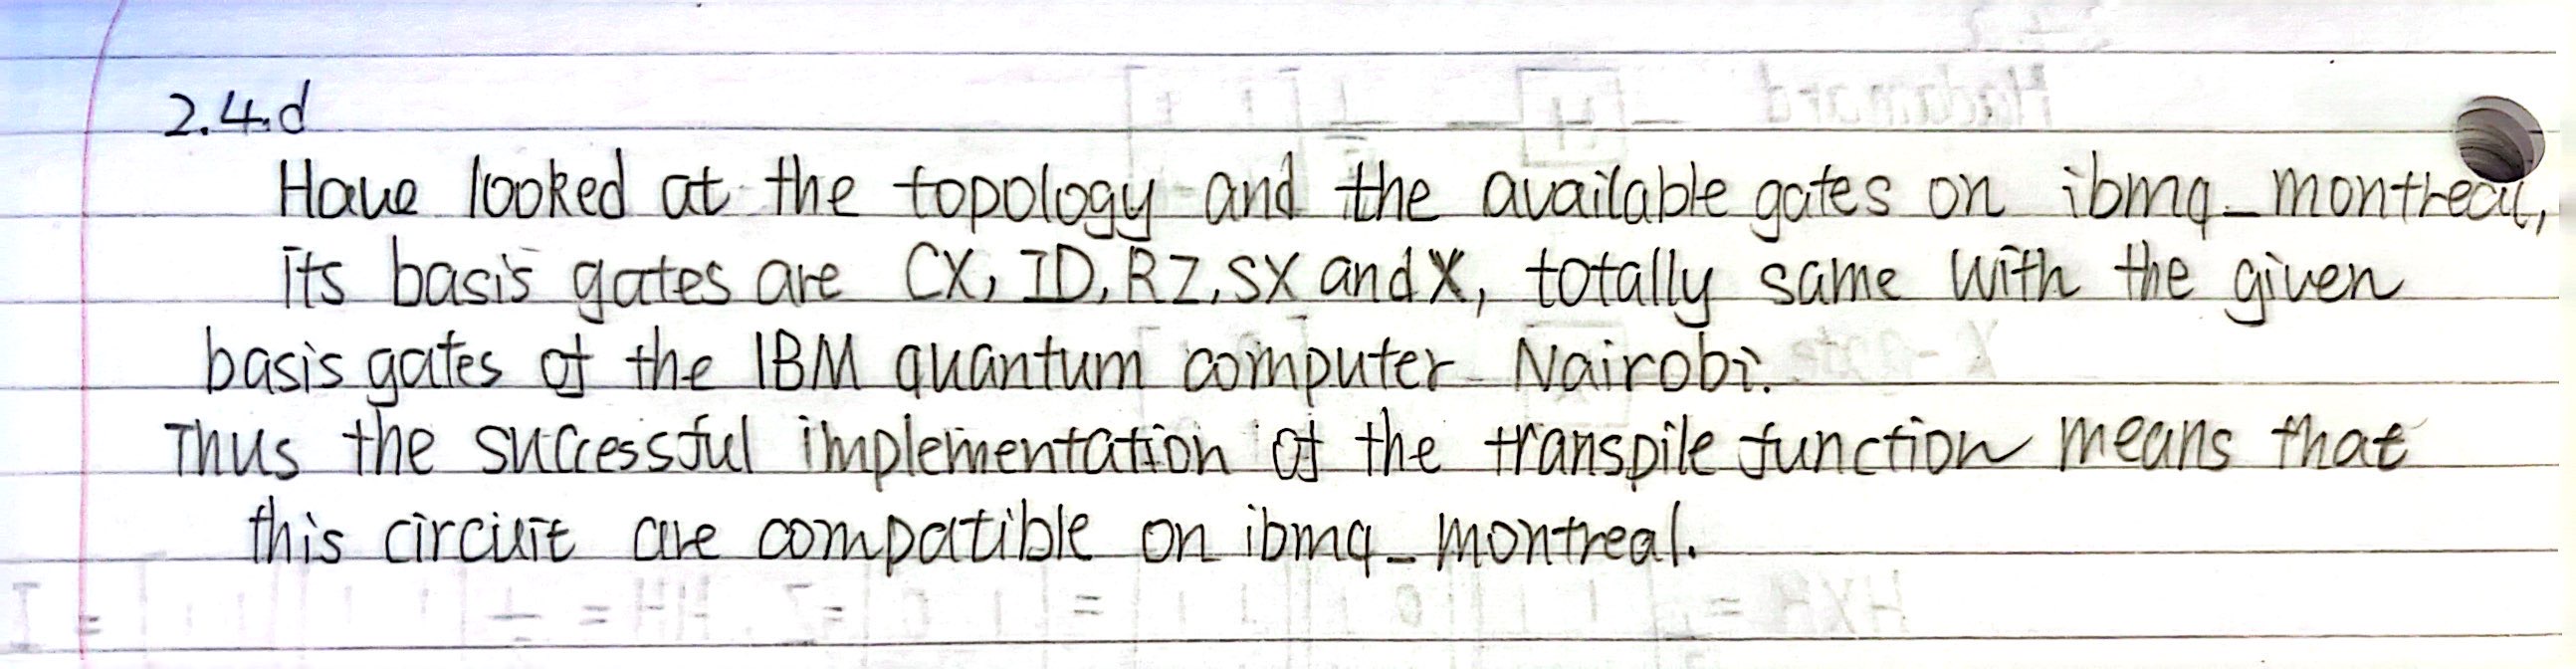 2.4.d
Have looked at the topology and the available gates on ibmq_montreal,
its basis gates are CX, ID, RZ, SX and X, totally same with the given
basis gates of the IBM quantum computer Nairobi.
Thus the successful implementation of the transpile function means that
this circuit are compatible on ibmq_montreal.